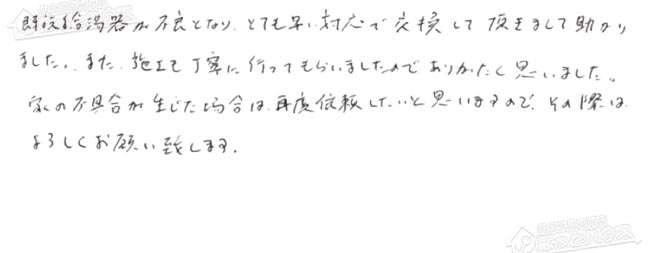 既設給湯器が不良となり、とても早い対応で交換して頂きまして助かり
ました。また、施工も丁寧に行ってもらいましたのでありがたく思いました。
家の不具合が生じた場合は再度依頼したいと思いますので、その際は
よろしくお願い致します。